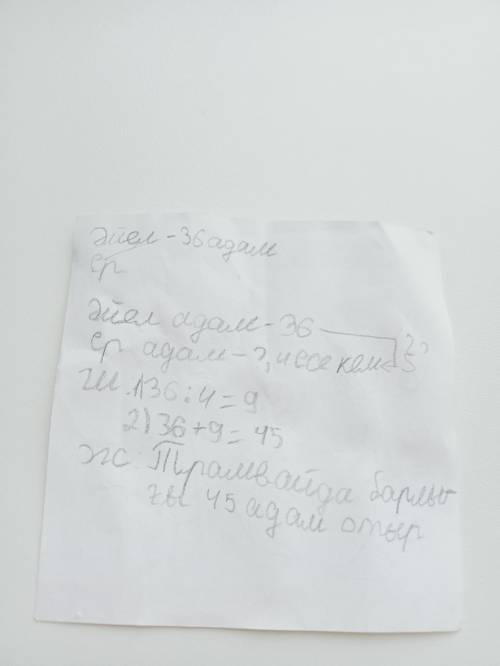 Әйел - 36 адам
Ер
Әйел адам - 36
Ер адам - ?, 4 есе кем ?
Ш. 1) 36 : 4 = 9
2) 36 + 9 = 45
Ж: Трамвайда барлы
ғы 45 адам отыр